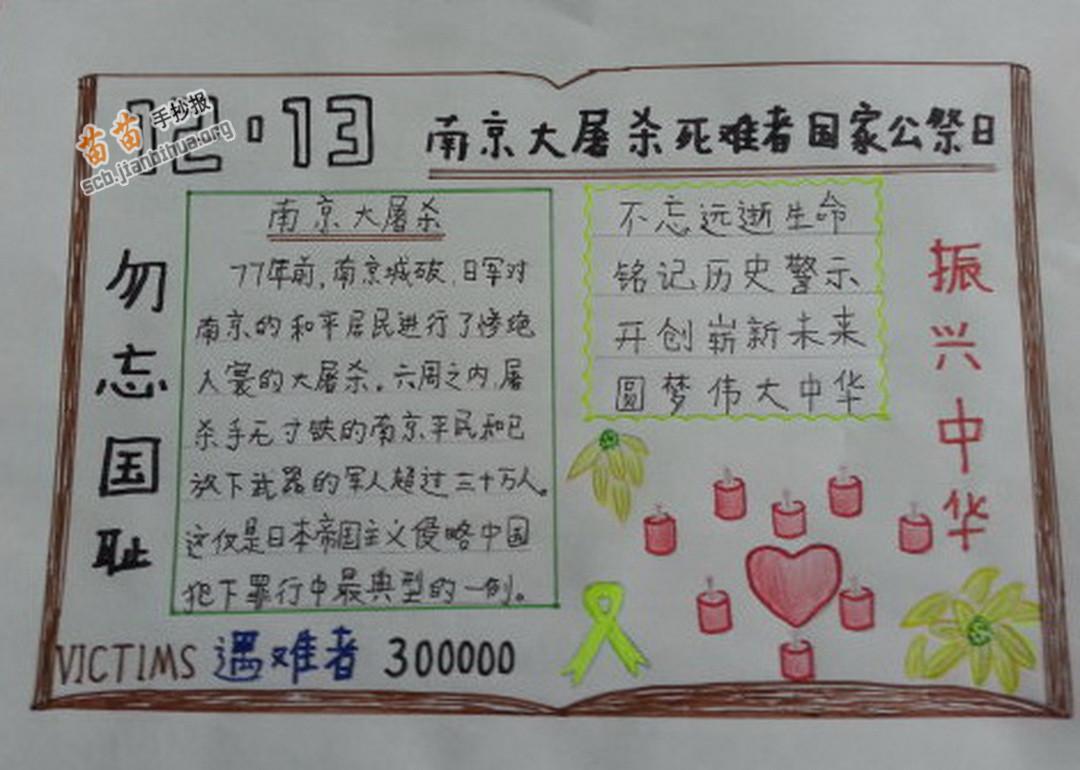 12·13
南京大屠杀死难者国家公祭日
苗苗手抄报
scb.jianbihua.org
勿忘国耻
南京大屠杀
77年前,南京城破,日军对
南京的和平居民进行了惨绝
人寰的大屠杀。六周之内,屠
杀手无寸铁的南京平民和已
放下武器的军人超过三十万人。
这仅是日本帝国主义侵略中国
犯下罪行中最典型的一例。
不忘远逝生命
铭记历史警示
开创崭新未来
圆梦伟大中华
振兴中华
VICTIMS 遇难者 300000